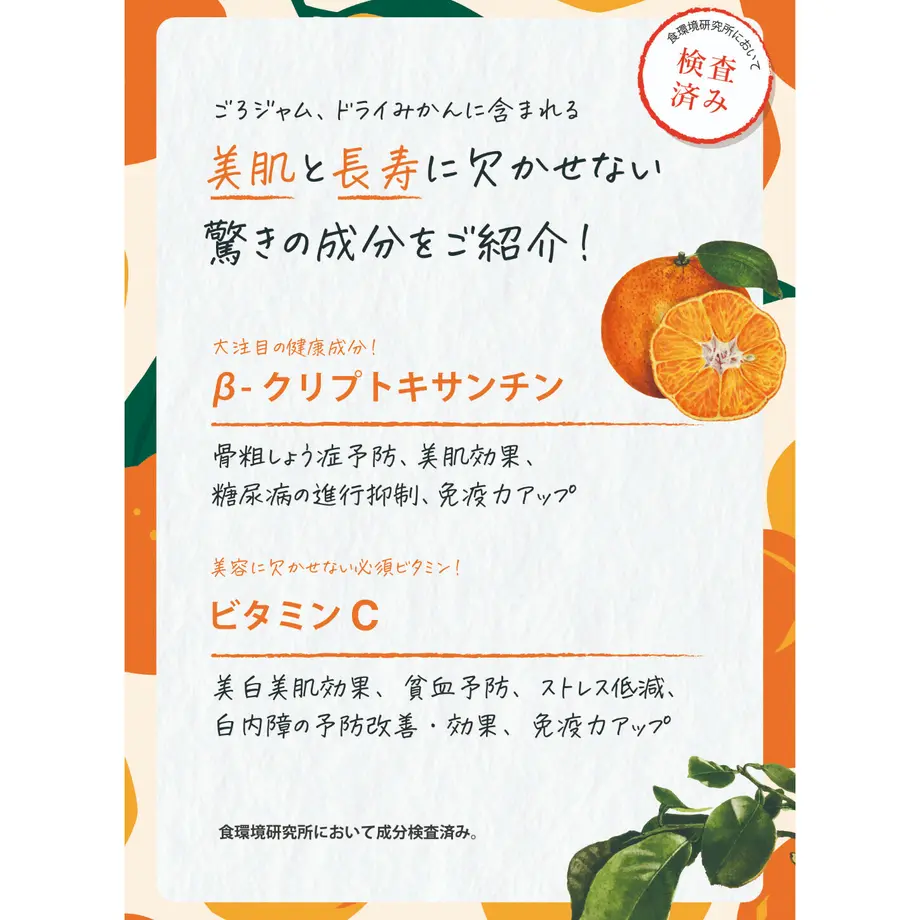 食環境研究所において
検査
済み
ごろジャム、ドライみかんに含まれる
美肌と長寿に欠かせない
驚きの成分をご紹介！
大注目の健康成分！
β-クリプトキサンチン
骨粗しょう症予防、美肌効果、
糖尿病の進行抑制、免疫力アップ
美容に欠かせない必須ビタミン！
ビタミンC
美白美肌効果、貧血予防、ストレス低減、
白内障の予防改善・効果、免疫力アップ
食環境研究所において成分検査済み。